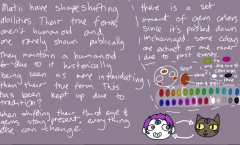 Matii have shapeshifting
abilities. Their true forms
aren't humanoid and
are rarely shown publically.
They maintain a humanoid
due to it historically
being seen as more intimidating
than their true form. This
has been kept up due to
tradition?
when shifting their third eye &
gems stay present, everything
else can change
there is a set
amount of gem colors
since it's passed down
unchanged some colours
are extinct or are rarer
due to past events